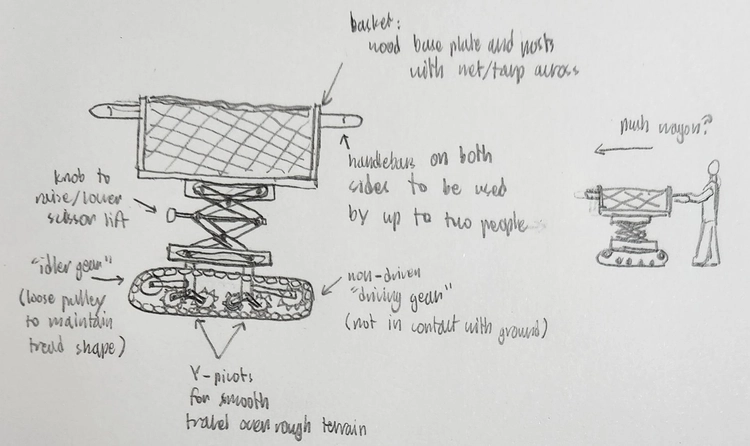 basket:
wood base plate and posts
with net/tarp across
push wagon?
handlebars on both
sides to be used
by up to two people
knob to
raise/lower
scissor lift
"idler gear"
(loose pulley
to maintain
tread shape)
non-driven
"driving gear"
(not in contact with ground)
Y-pivots
for smooth
travel over rough terrain